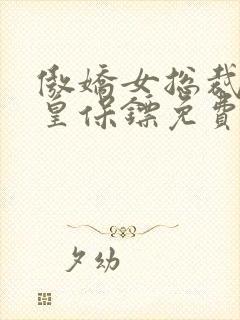 傲嬌女总裁
皇保鏢免費
夕幼